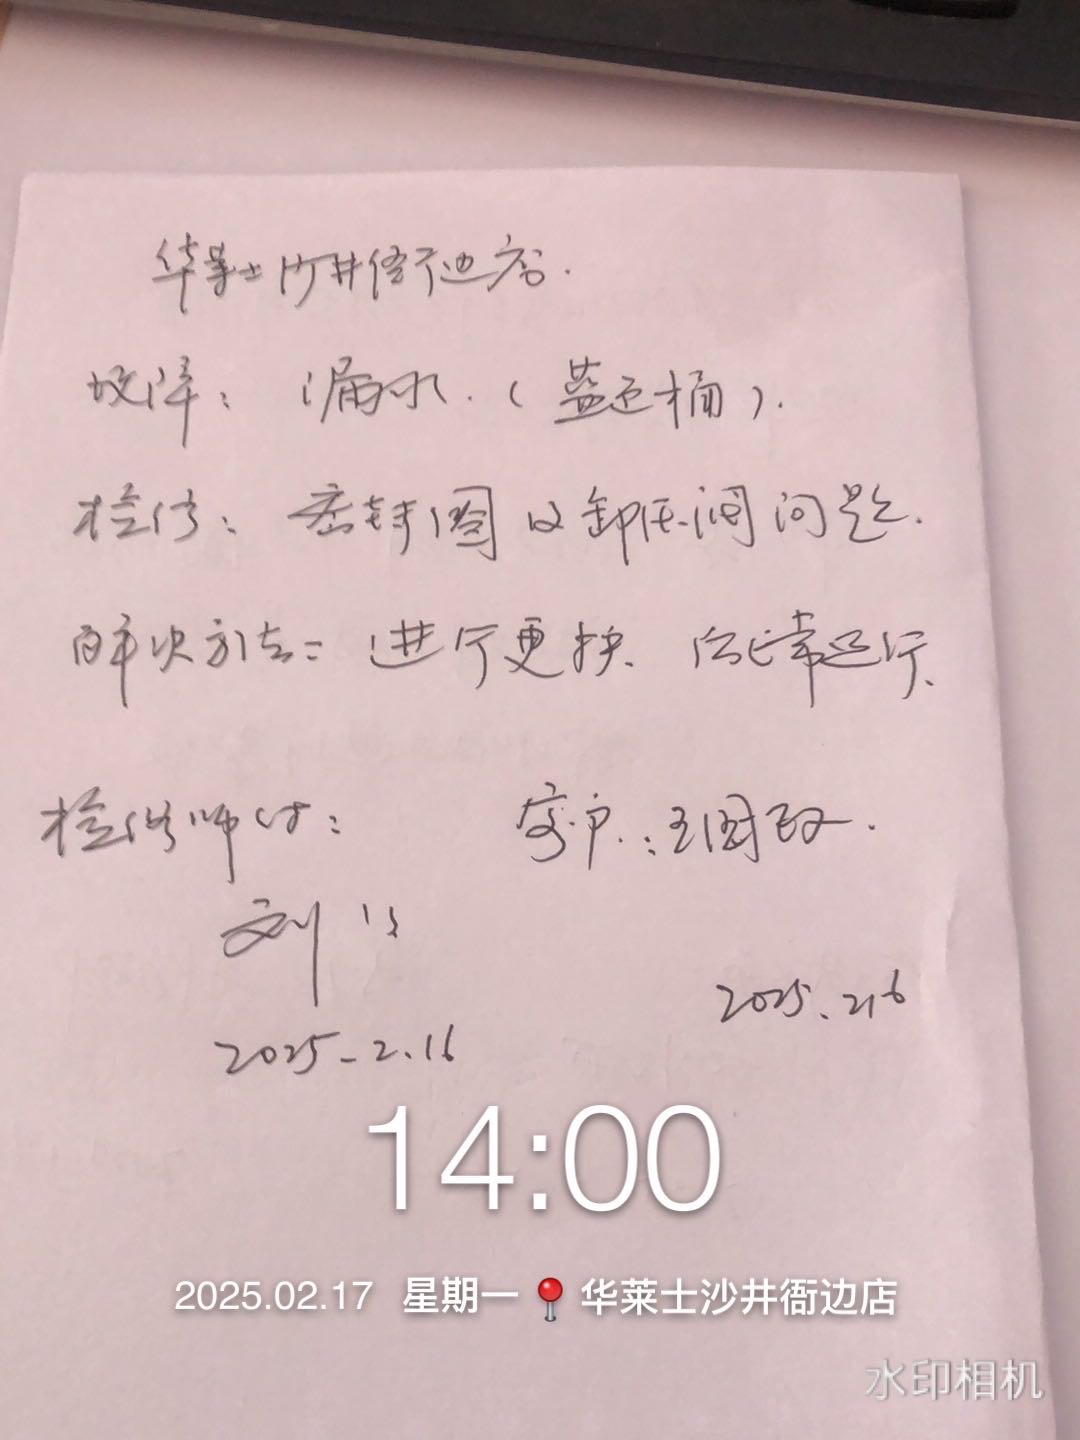 华莱士沙井衙边店.
故障：漏水.（蓝色桶）.
检修：密封圈及卸压阀问题.
解决方法：进行更换、后正常运行、
检修师付：
客户：王国政.
刘
2025.2.16
2025-2.16
14:00
2025.02.17 星期一 华莱士沙井衙边店
水印相机